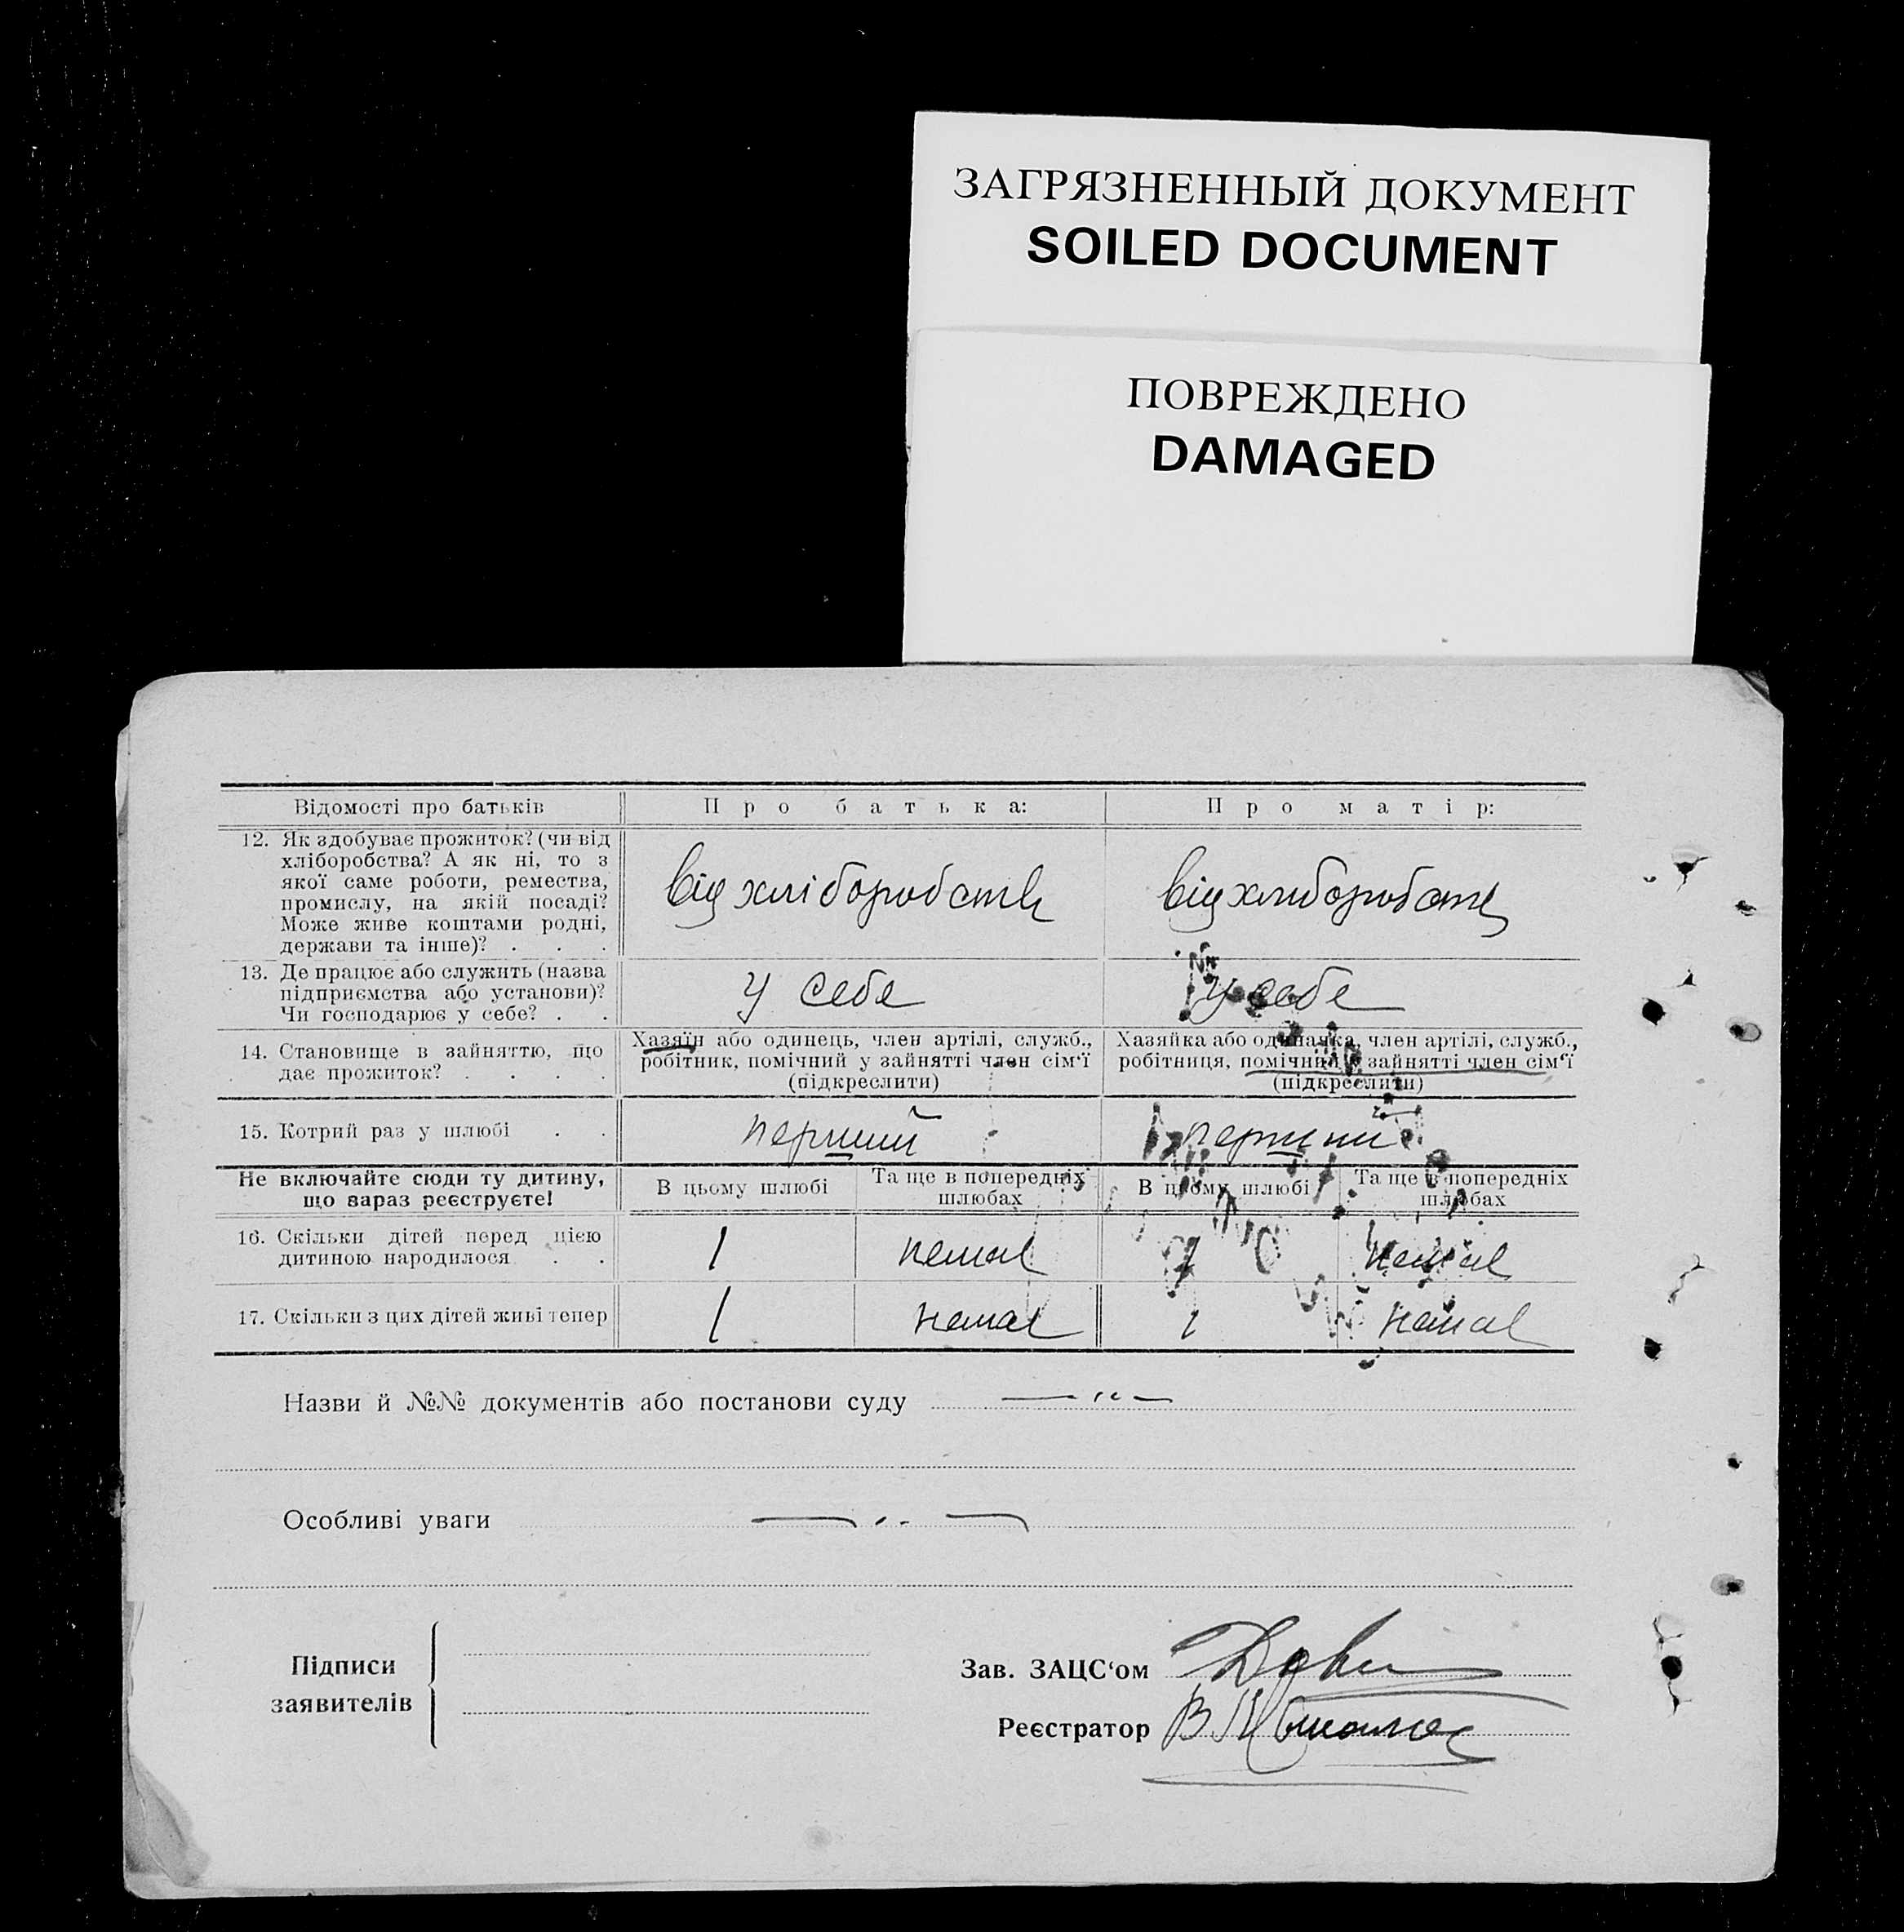 ЗАГРЯЗНЕННЫЙ ДОКУМЕНТ
SOILED DOCUMENT
ПОВРЕЖДЕНО
DAMAGED
Відомості про батьків
Про батька:
Про матір:
12. Як здобуває прожиток? (чи від
хліборобства? А як ні, то з
якої саме роботи, ремества,
промислу, на якій посаді?
Може живе коштами родні,
держави та інше)? . . .
від хліборобств
від хлиборобств
13. Де працює або служить (назва
підприємства або установи)?
Чи господарює у себе? . .
у себе
у себе
14. Становище в зайняттю, що
дає прожиток? . . . .
Хазяїн або одинець, член артілі, служб.,
робітник, помічний у зайнятті член сім‘ї
(підкреслити)
Хазяйка або одиначка, член артілі, служб.,
робітниця, помічний у зайнятті член сім‘ї
(підкреслити)
15. Котрий раз у шлюбі . .
перший
перший
Не включайте сюди ту дитину,
що зараз реєструєте!
В цьому шлюбі
Та ще в попередніх
шлюбах
В цьому шлюбі
Та ще в попередніх
шлюбах
16. Скільки дітей перед цією
дитиною народилося . .
1
немає
1
немає
17. Скільки з цих дітей живі тепер
1
немає
1
немає
Назви й №№ документів або постанови суду — „ —
Особливі уваги — „ —
Підписи
заявителів
Зав. ЗАЦС‘ом
Реєстратор